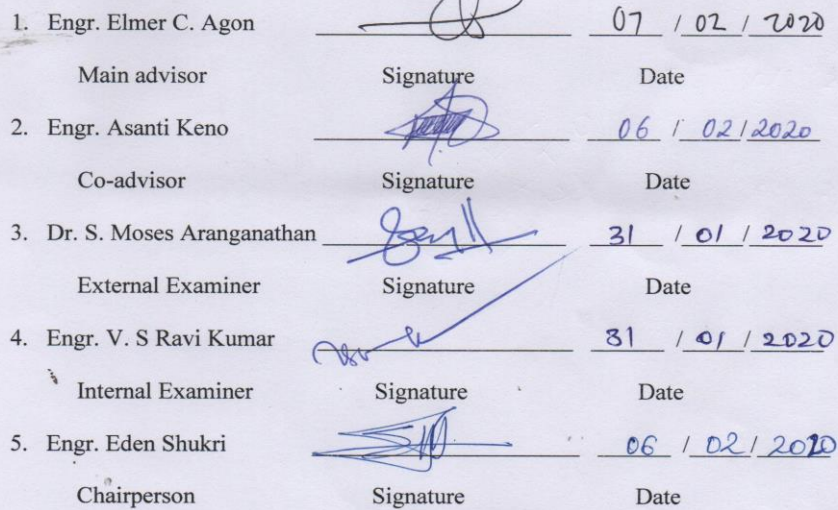 1. Engr. Elmer C. Agon 07 / 02 / 2020
Main advisor Signature Date
2. Engr. Asanti Keno 06 / 02 / 2020
Co-advisor Signature Date
3. Dr. S. Moses Aranganathan 31 / 01 / 2020
External Examiner Signature Date
4. Engr. V. S Ravi Kumar 31 / 01 / 2020
Internal Examiner Signature Date
5. Engr. Eden Shukri 06 / 02 / 2020
Chairperson Signature Date